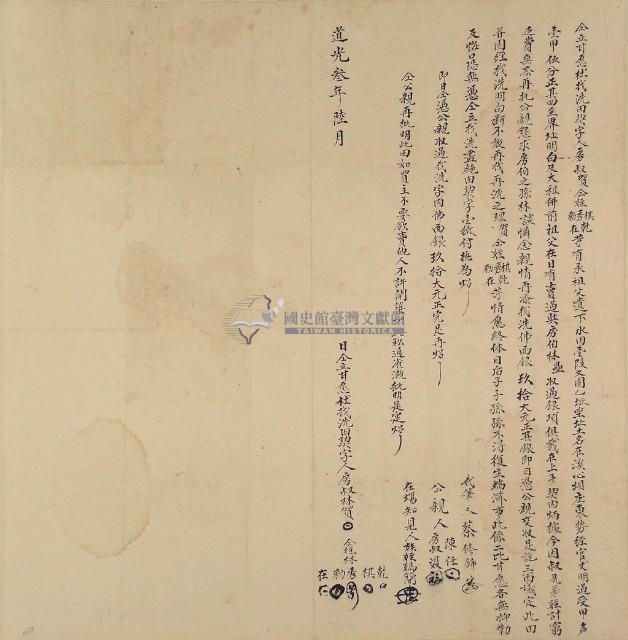 仝立甘愿杜找洗田契字人房叔賀仝姪棋乾秀在勅等有承祖父遺下水田壹段又圍乙址坐址土名在溪心埧庄東勢經官丈明遵受甲声
壹甲伍分正其四至界址明白及大租併前祖父在日有出賣過與房伯林 收過銀項俱載在上手契內炳據今因叔兄弟姪計窮
乏費無奈再托公親懇求房伯之孫林談憐念親情再添找洗佛面銀玖拾大元正其銀即日憑公親交收足訖三面議定此田
并園經找洗明白斷不敢再找再洗之理賀仝姪棋乾秀在勅等情愿終休日后子子孫孫不得復生端滋事此係二比甘愿各無抑勒
反悔口恐無憑仝立找洗盡絕田契字壹紙付執為炤
即日仝憑公親收過找洗字內佛面銀玖拾大元正完足再炤
仝公親再批明此田如買主不要欲賣他人不許 批明是定炤
代筆人蔡修飾
公親人 陳任 房叔
在場知見人族姪
道光叁年陸月 日仝立甘愿杜找洗田契字人房叔林賀 仝姪林 乾 棋 秀 勅 在
國史館臺灣文獻館
TAIWAN HISTORICA